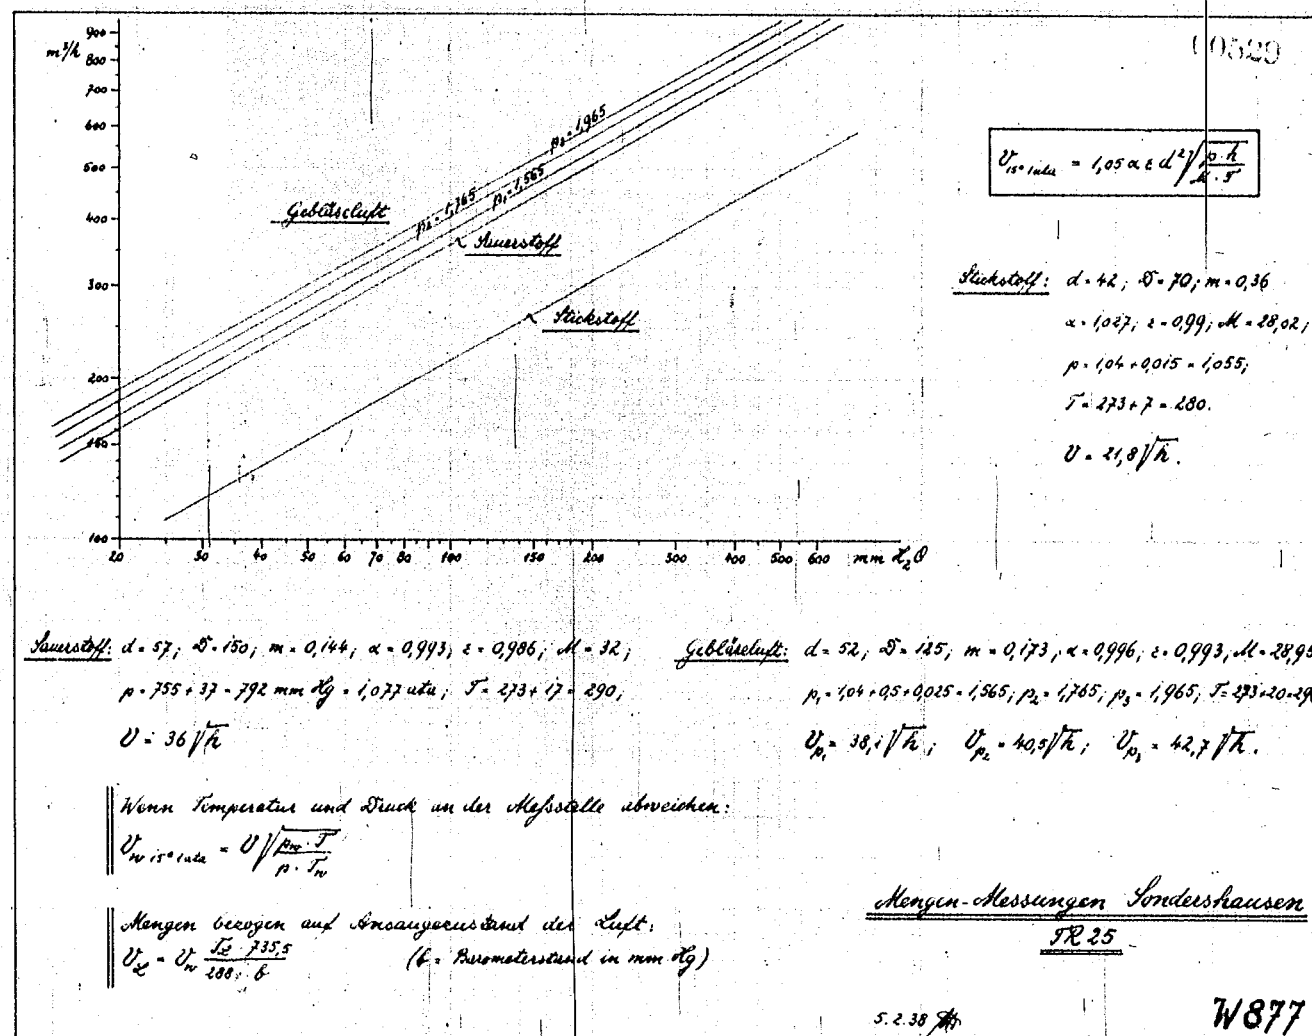 00529
m³/h
900
800
700
600
500
400
300
200
150
100
20 30 40 50 60 70 80 100 150 200 300 400 500 600 mm H₂O
p₃ = 1,965
p₂ = 1,765
p₁ = 1,565
Gebläseluft
Sauerstoff
Stickstoff
V₁₅° ₁ₐₜₐ = 1,05 α ε d² √(p · h / M · T)
Stickstoff: d = 42; D = 70; m = 0,36
α = 1,027; ε = 0,99; M = 28,02;
p = 1,04 + 0,015 = 1,055;
T = 273 + 7 = 280.
V = 21,8 √h.
Sauerstoff: d = 57; D = 150; m = 0,144; α = 0,993; ε = 0,986; M = 32;
p = 755 + 37 = 792 mm Hg = 1,077 ata; T = 273 + 17 = 290;
V = 36 √h
Gebläseluft: d = 52; D = 125; m = 0,173; α = 0,996; ε = 0,993; M = 28,95
p₁ = 1,04 + 0,5 + 0,025 = 1,565; p₂ = 1,765; p₃ = 1,965; T = 273 + 20 = 29
Vp₁ = 38,1 √h; Vp₂ = 40,5 √h; Vp₃ = 42,7 √h.
Wenn Temperatur und Druck an der Meßstelle abweichen:
V_w 15° 1ata = V √(p_w · T / p · T_w)
Mengen bezogen auf Ansaugezustand der Luft:
V_L = V_w T_L · 735,5 / 288 · b (b = Barometerstand in mm Hg)
Mengen-Messungen Sondershausen
TR 25
5.2.38
W877